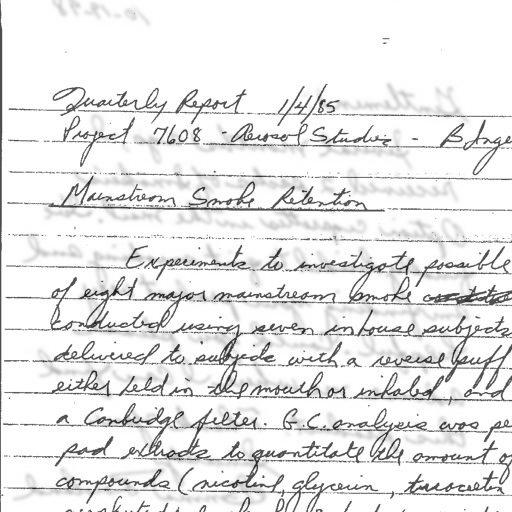 Quarterly Report 1/4/85
Project 7608 - Aerosol Studies - B. Inge
Mainstream Smoke Retention
Experiments to investigate possible
of eight major mainstream smoke
conducted using seven inhouse subjects
delivered to subjects with a reverse puff
either held in the mouth or inhaled, and
a Cambridge filter. G.C. analysis was pe
pad extracts to quantitate the amount of
compounds (nicotine, glycerin, triacetin